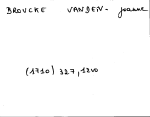 BROUCKE VANDEN- Jeanne
(1710) 327, 1200